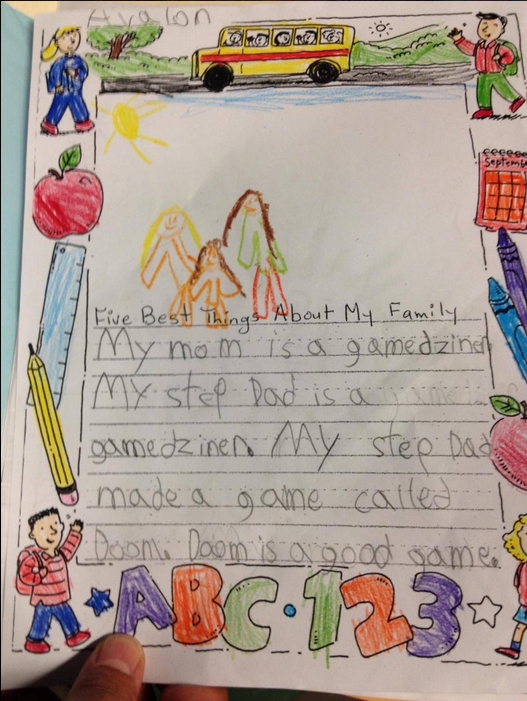 Avalon
September
Five Best Things About My Family
My mom is a gamedziner
My step Dad is a game
gamedziner. My step Dad
made a game called
Doom. Doom is a good game.
ABC · 123